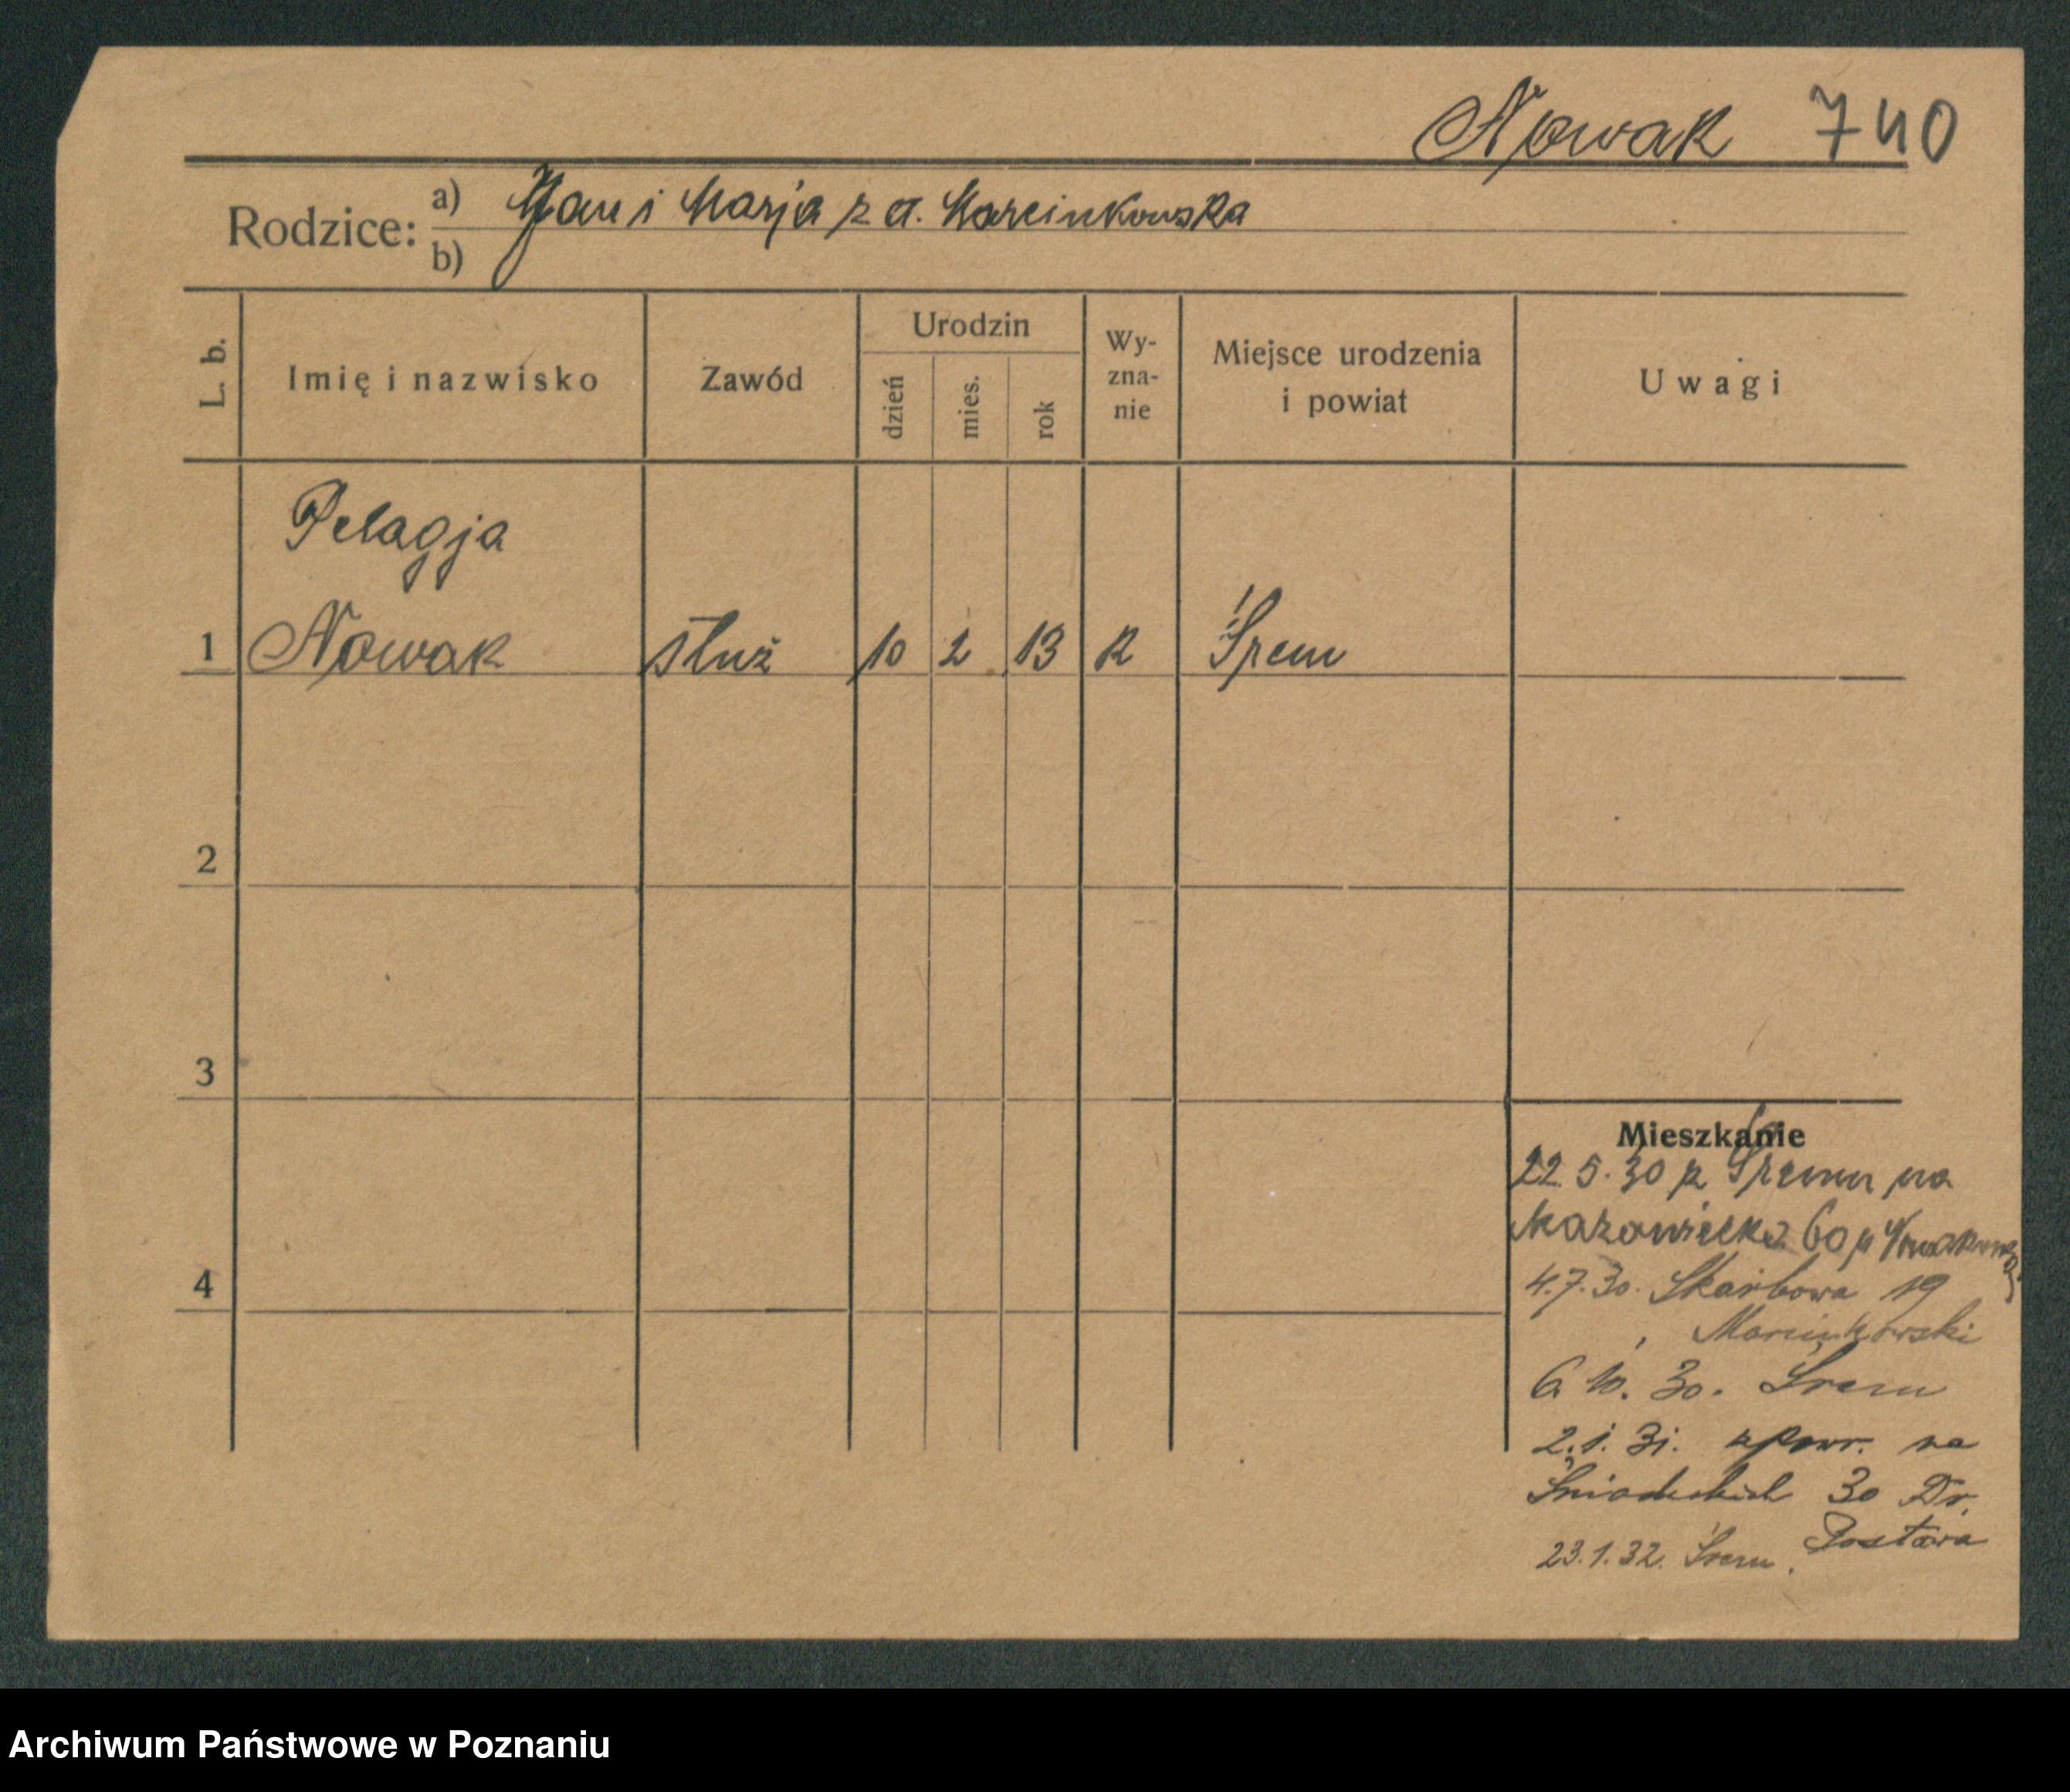 Nowak 740
Rodzice: a) Jan i Marja z d. Marcinkowska
b)
L. b.
Imię i nazwisko
Zawód
Urodzin
dzień
mies.
rok
Wy-
zna-
nie
Miejsce urodzenia
i powiat
Uwagi
Pelagja
1 Nowak służ 10 2 13 R Śrem
2
3
4
Mieszkanie
22.5.30 z Śremu na
Mazowiecka 60
4.7.30. Skarbowa 19
Marcinkowski
6.10.30. Śrem
2.1.31. zpowr. na
Śniadeckich 30 Dr.
Postawa
23.1.32. Śrem.
Archiwum Państwowe w Poznaniu